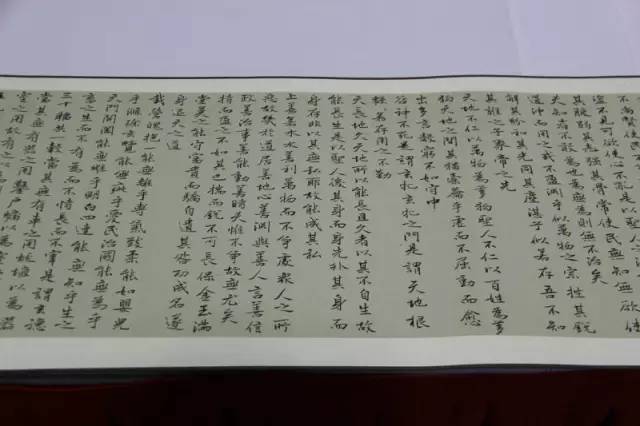 其腹弱其志強其骨常使民無知無欲使
夫知者不敢為也為無為則無不治矣
道沖而用之或不盈淵乎似萬物之宗挫其銳
解其紛和其光同其塵湛乎似若存吾不知
其誰之子象帝之先
天地不仁以萬物為芻狗聖人不仁以百姓為芻
狗天地之間其猶橐籥乎虛而不屈動而愈
出多言數窮不如守中
谷神不死是謂玄牝玄牝之門是謂天地根
綿綿若存用之不勤
天長地久天地所以能長且久者以其不自生故
能長生是以聖人後其身而身先外其身而
身存非以其無私耶故能成其私
上善若水水善利萬物而不爭處衆人之所
惡故幾於道居善地心善淵與善人言善信
政善治事善能動善時夫惟不爭故無尤矣
持而盈之不如其已揣而銳不可長保金玉滿
堂莫之能守富貴而驕自遺其咎功成名遂
身退天之道
載營魄抱一能無離乎專氣致柔能如嬰兒
乎滌除玄覽能無疵乎愛民治國能無為乎
天門開闔能無雌乎明白四達能無知乎生之
畜之生而不有為而不恃長而不宰是謂玄德
三十輻共一轂當其無有車之用埏埴以為器
當其無有器之用鑿戶牖以為室